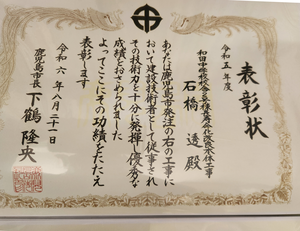 表彰状
令和五年度
石橋 透 殿
あなたは鹿児島市発注の右の工事に
おいて建設技術者として従事され
その技術力を十分に発揮し優秀な
成績をおさめられました
よってここにその功績をたたえ
表彰します
令和六年八月二十一日
鹿児島市長 下鶴 隆央